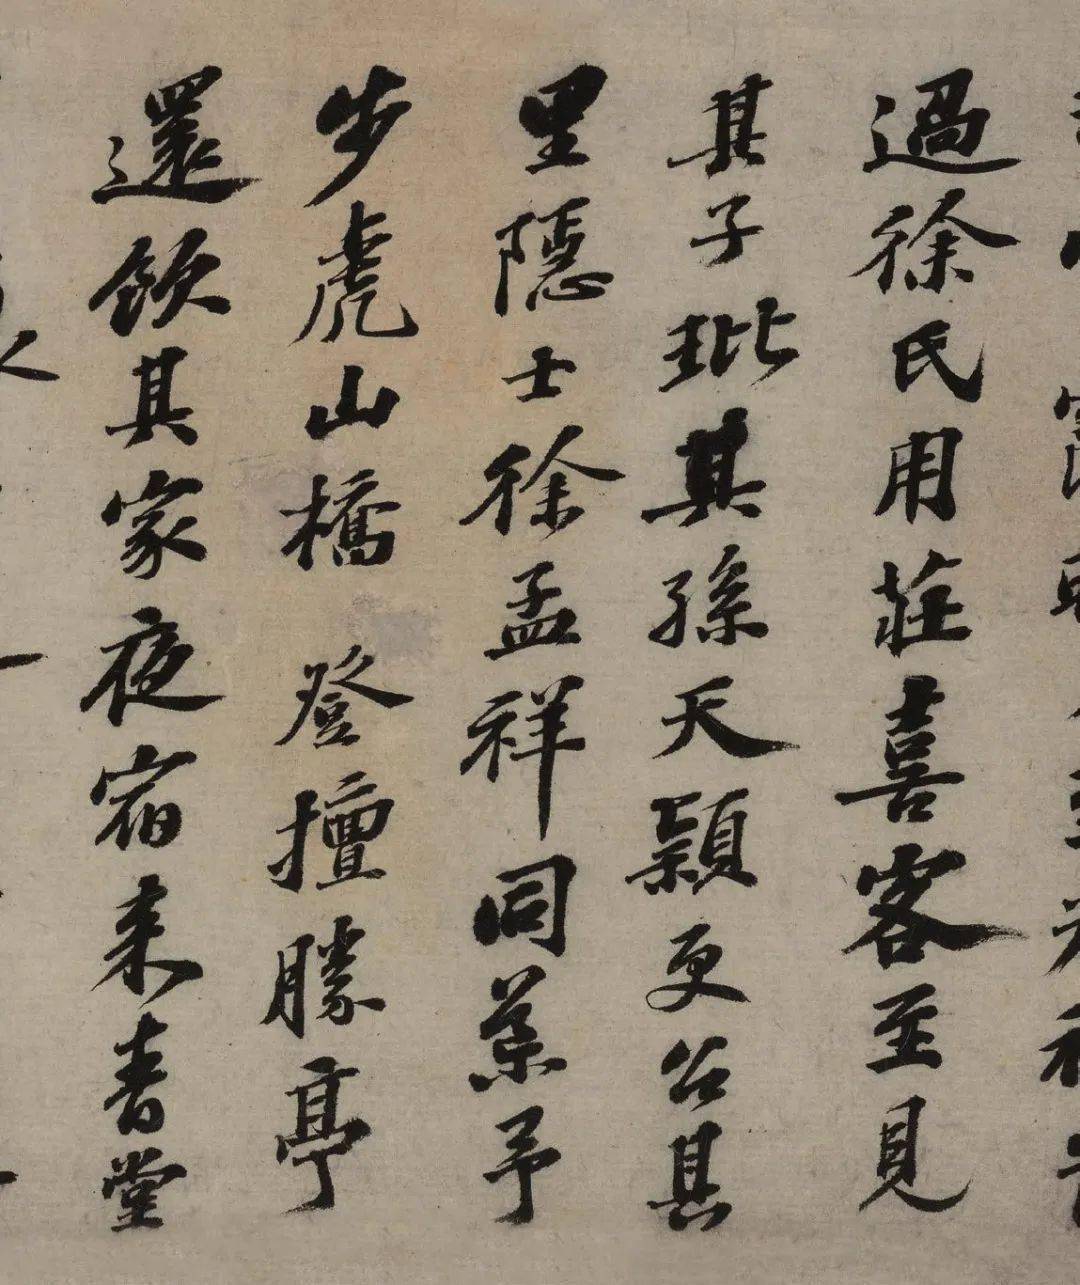 過徐氏用莊喜客至見
其子玭其孫天穎更召其
里隱士徐孟祥同予
步虎山橋登擅勝亭
還飲其家夜宿来青堂